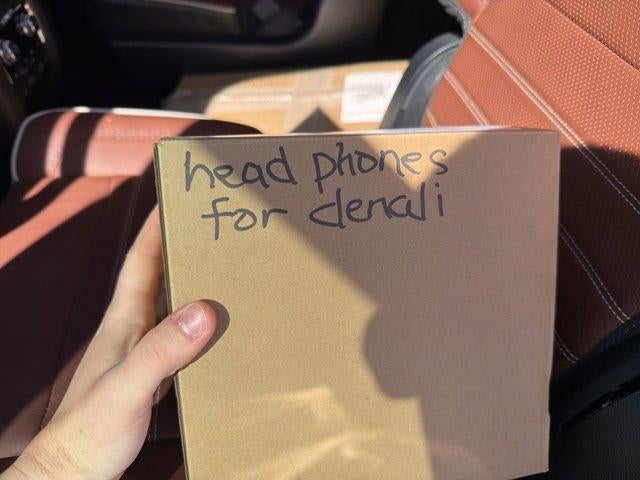 head phones
for denali